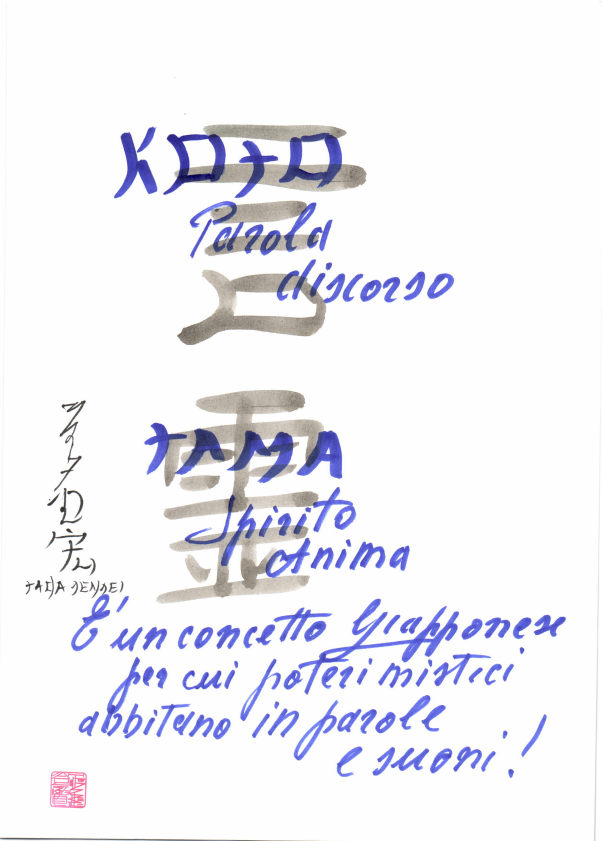 言
KOTO
Parola
discorso
霊
TAMA
Spirito
Anima
TADA SENSEI
È un concetto Giapponese
per cui poteri mistici
abbitano in parole
e suoni!